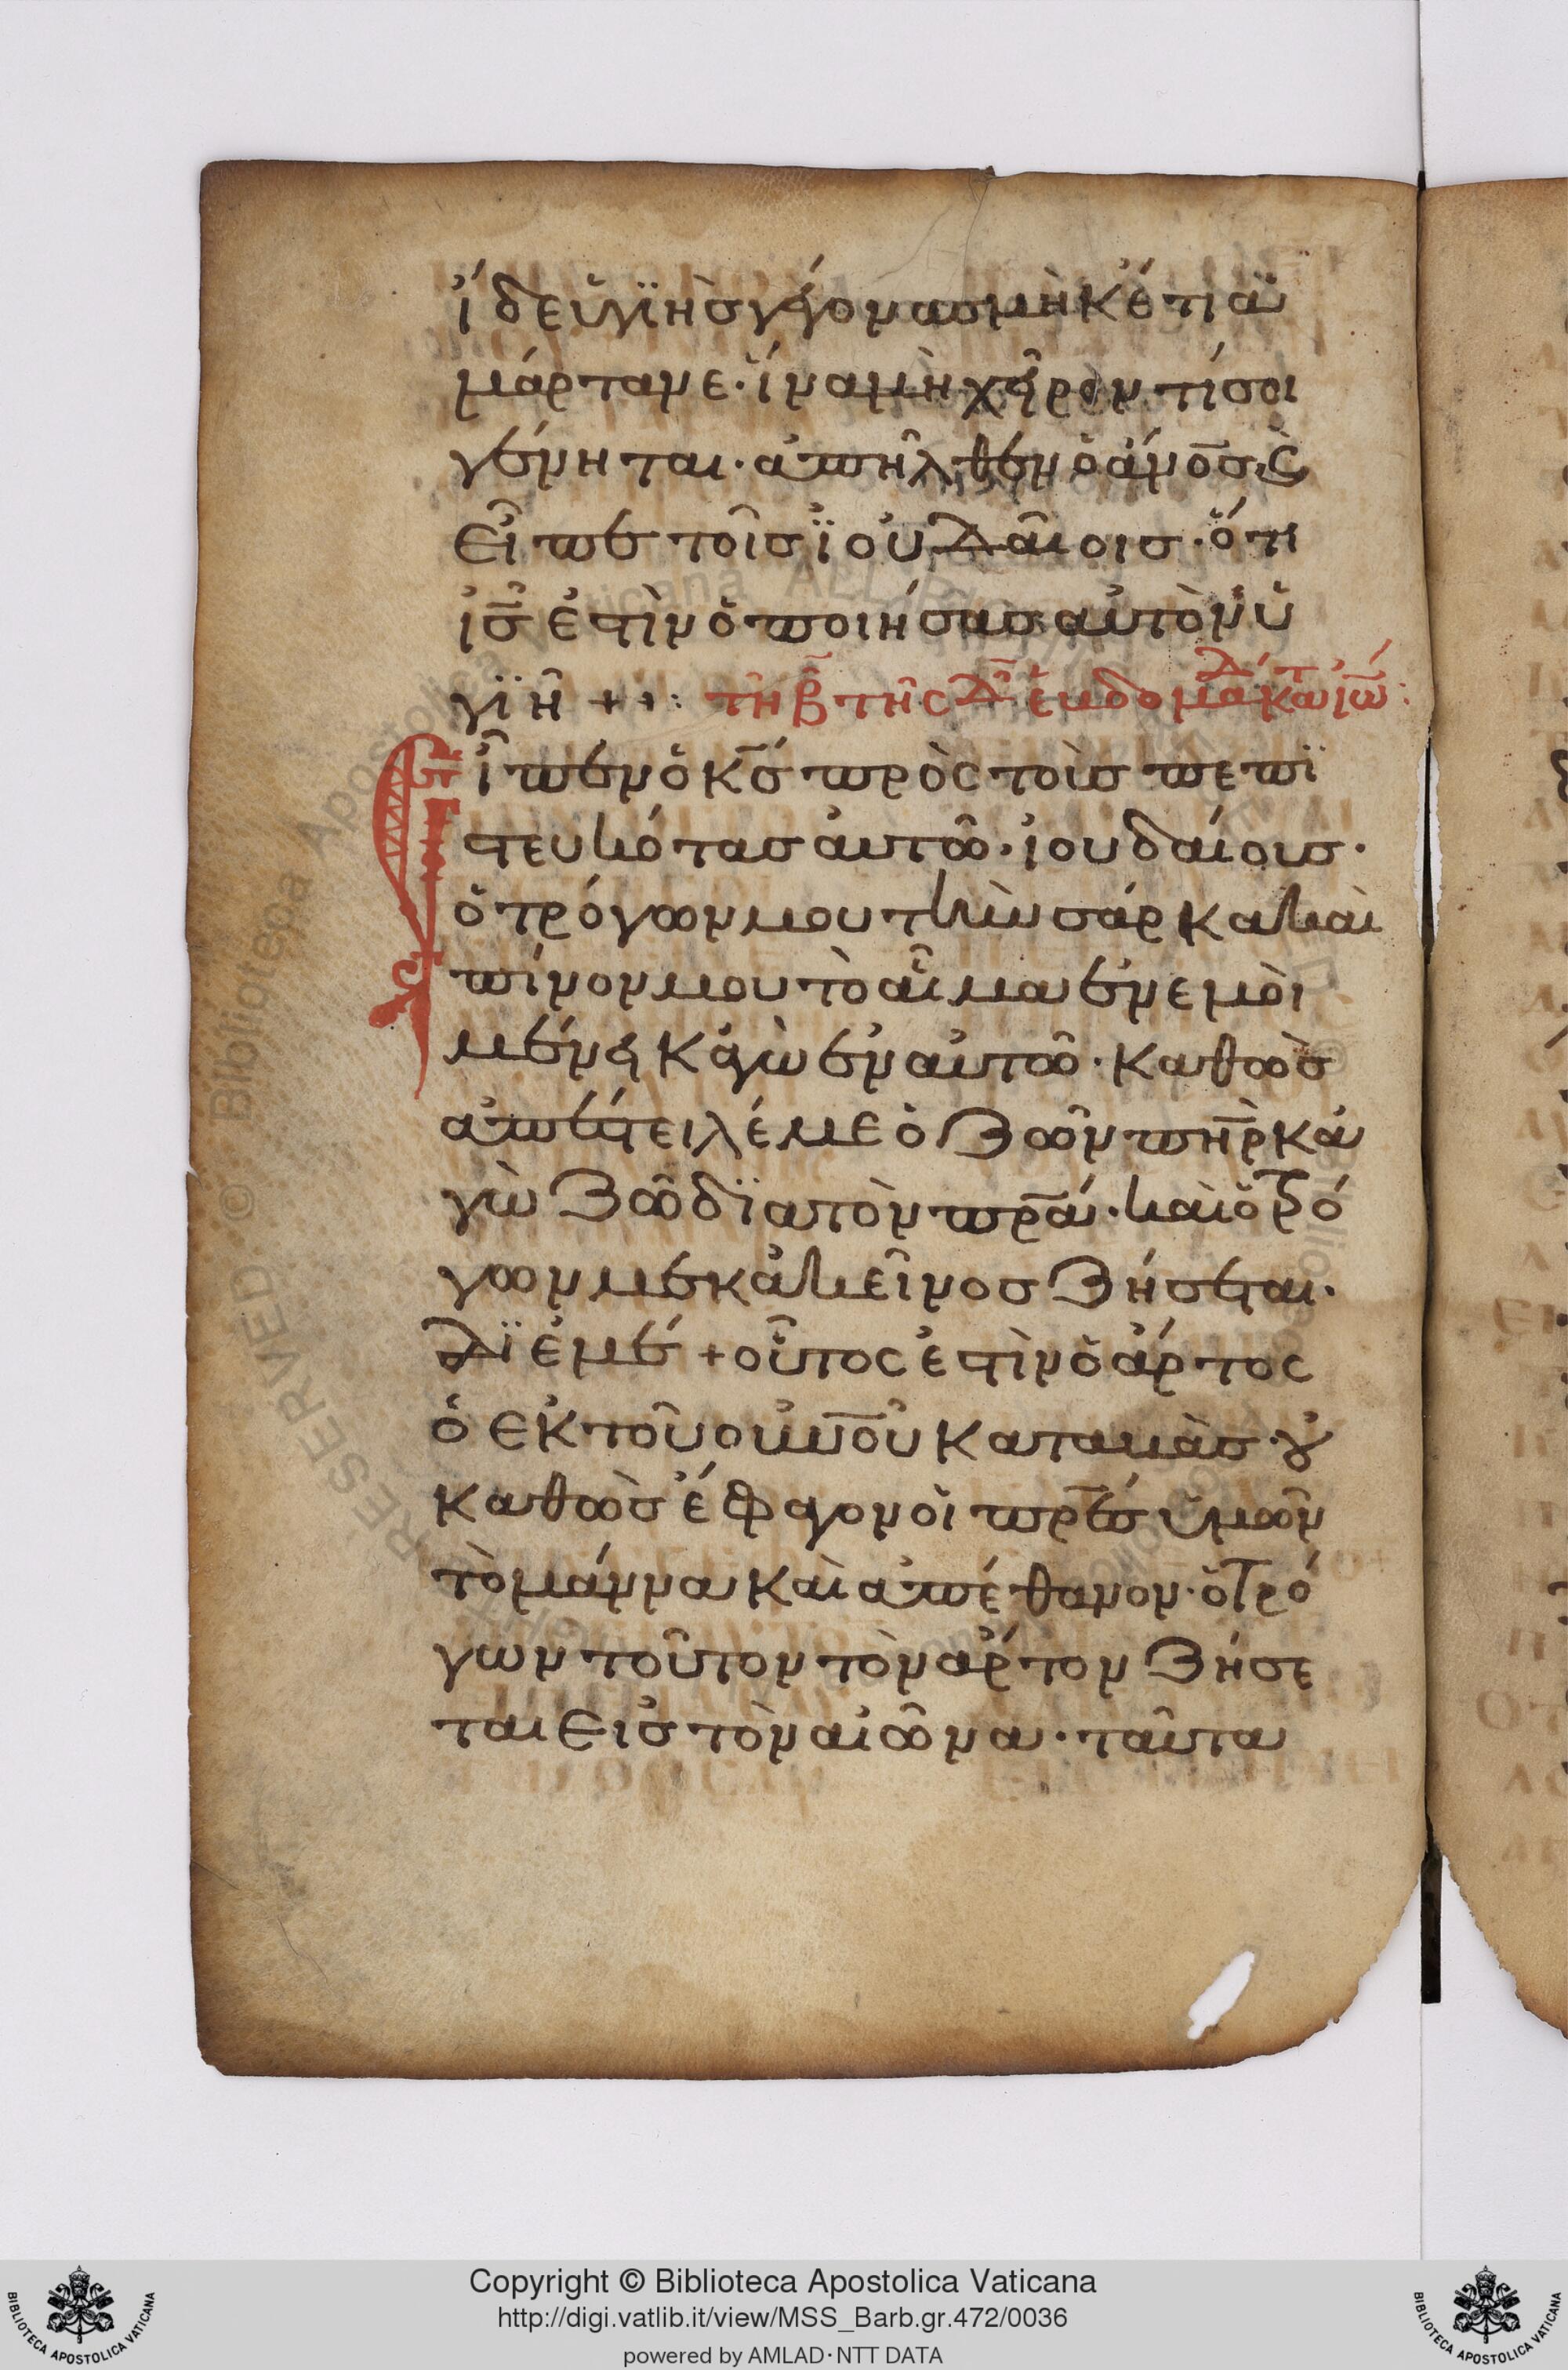 ἴδε ὑγϊὴσ γέγονασ μὴκέτι ἁ
μάρτανε· ἵνα μὴ χεῖρόν τί σοι
γένηται· ἀπῆλθεν ὁ ἄνο̅σ, ϗ̀
εἶπε τοῖσ ϊουδαίοισ· ὅτι
ἰσ̅ ἐστὶν ὁ ποιήσασ αὐτὸν ὑ
γϊῆ + +: τῆ β̅ τῆς δ̅ ἑβδομάδ κ̅τ ἰω̅:
Εἶπεν ὁ κ̅σ πρὸς τοὺσ πεπι
στευκότασ αὐτῶ· ἰουδαίουσ·
ὁ τρόγων μου τὴν σάρκα καὶ
πίνον μου τὸ αἷμα ἐν εμοὶ
μένει κἀγὼ ἐν αὐτῶ· καθὼσ
απέστειλέ με ὁ ζῶν πη̅ρ κἀ
γὼ ζῶ δϊα τὸν πρ̅α· καὶ ὁ τρό
γων με κἀκεῖνοσ ζήσεται·
δϊ ἐμέ + οὗτος ἐστὶν ὁ ἄρτος
ὁ ἐκ τοῦ ουν̅οῦ καταβὰσ· οὐ
καθὼσ ἔφαγον οἱ πρ̅εσ ὑμῶν
τὸ μάννα καὶ ἀπέθανον· ὁ τρό
γων τοῦτον τὸν ἄρτον ζήσε
ται εἰσ τὸν αἰῶνα· ταῦτα
Copyright © Biblioteca Apostolica Vaticana
http://digi.vatlib.it/view/MSS_Barb.gr.472/0036
powered by AMLAD·NTT DATA
BIBLIOTECA APOSTOLICA VATICANA
BIBLIOTECA APOSTOLICA VATICANA